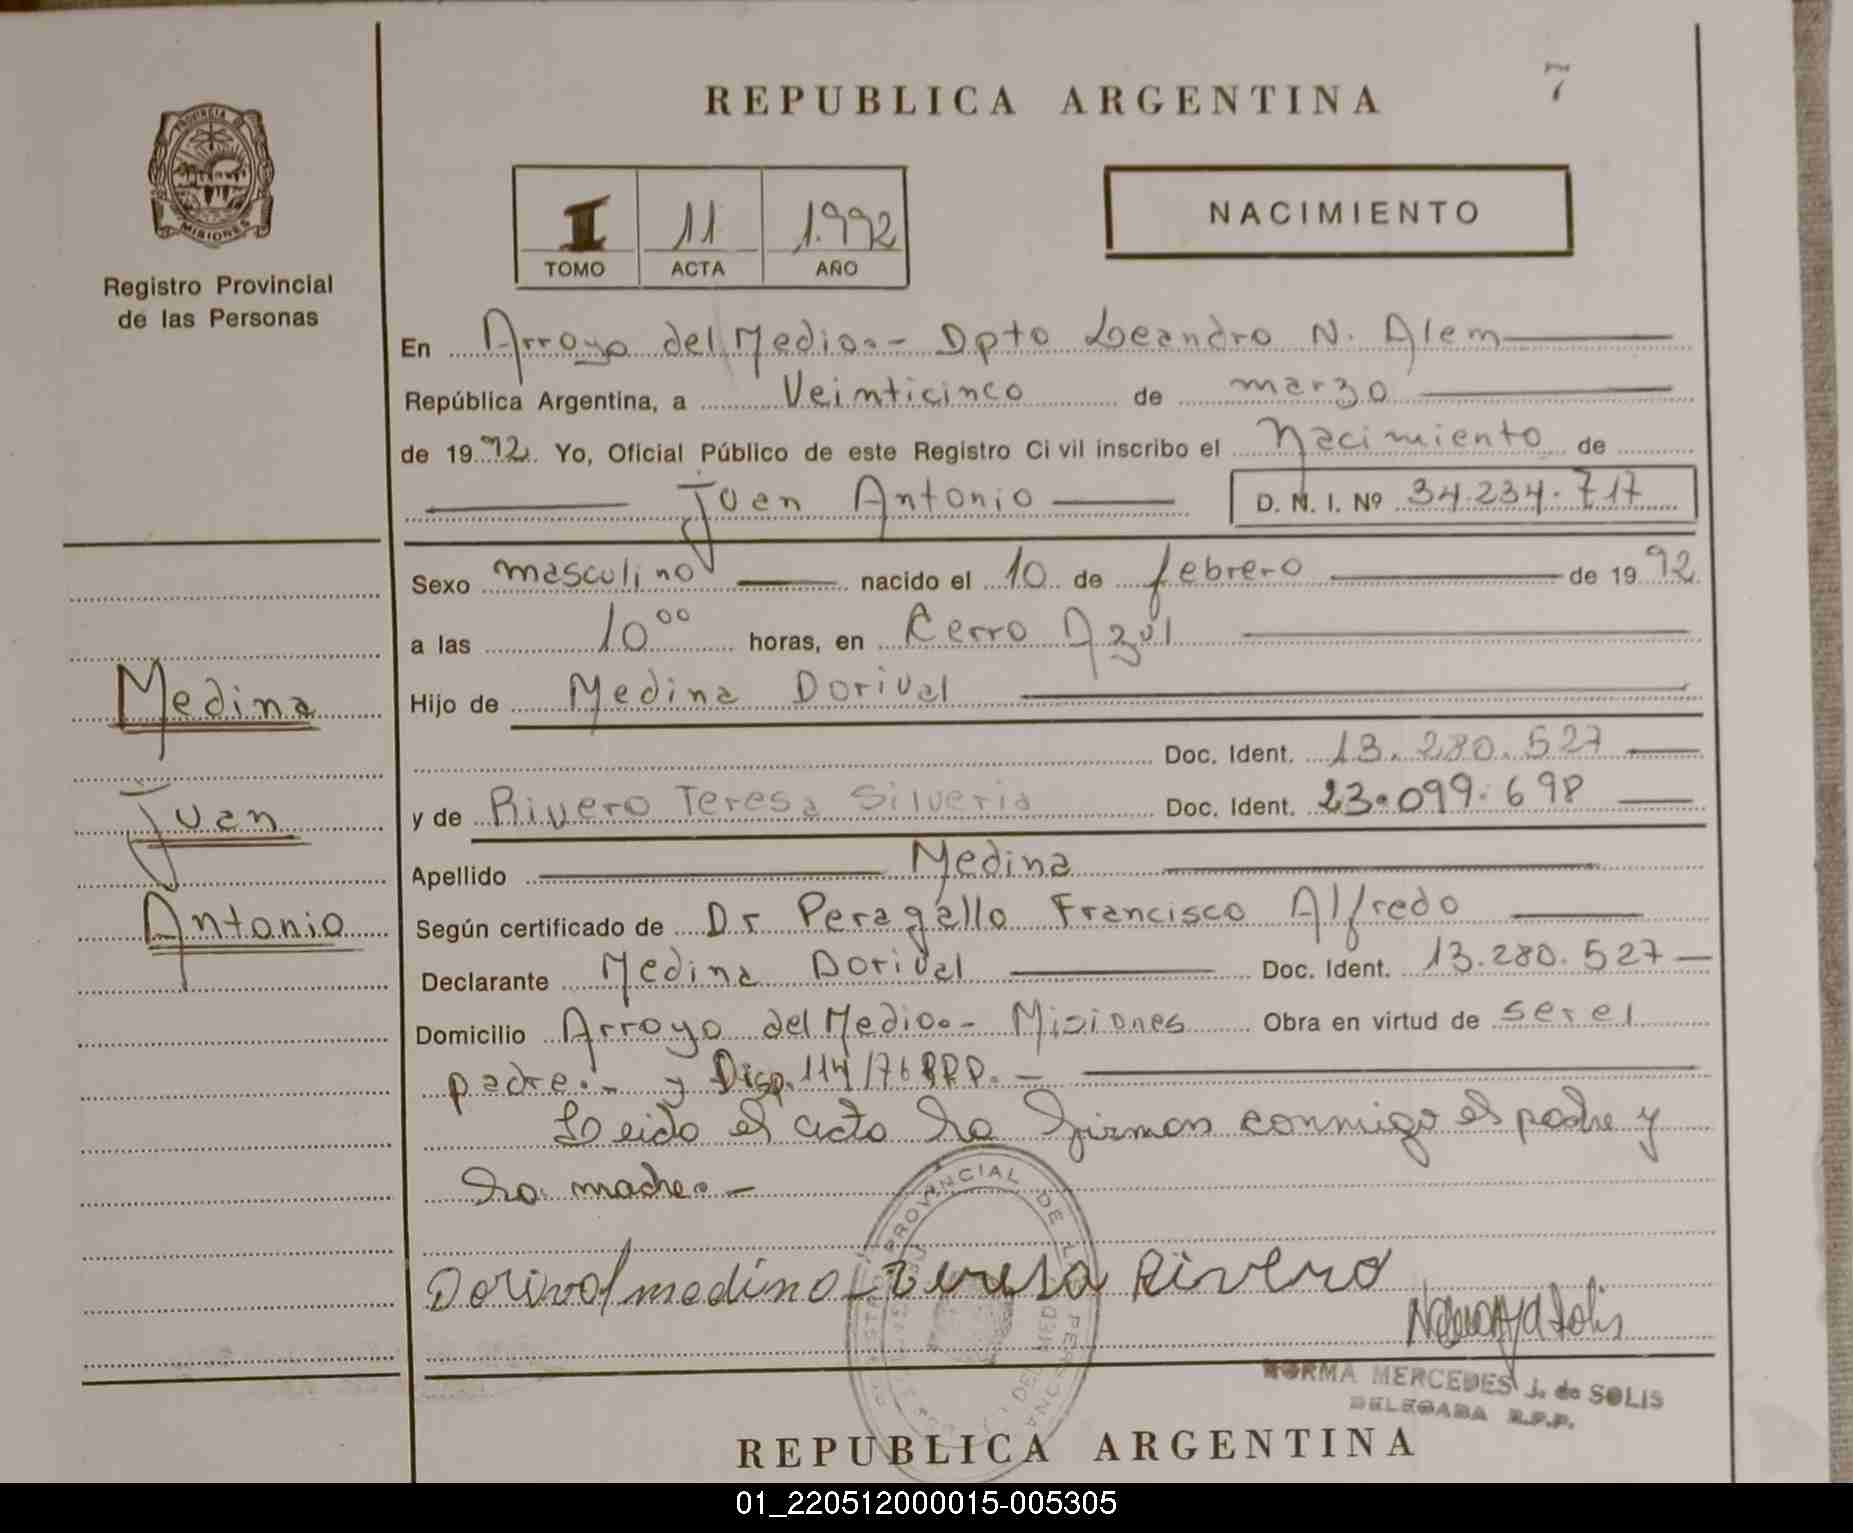 REPUBLICA ARGENTINA
7
PROVINCIA DE
MISIONES
Registro Provincial
de las Personas
I 11 1.992
TOMO ACTA AÑO
NACIMIENTO
En Arroyo del Medio.- Dpto Leandro N. Alem
República Argentina, a Veinticinco de marzo
de 1992. Yo, Oficial Público de este Registro Civil inscribo el Nacimiento de
Juan Antonio D. N. I. Nº 34.234.717
Sexo masculino nacido el 10 de febrero de 1992
a las 10⁰⁰ horas, en Cerro Azul
Hijo de Medina Dorival
Doc. Ident. 13.280.527
y de Rivero Teresa Silveria Doc. Ident. 23.099.698
Apellido Medina
Según certificado de Dr Peragallo Francisco Alfredo
Declarante Medina Dorival Doc. Ident. 13.280.527
Domicilio Arroyo del Medio.- Misiones Obra en virtud de ser el
padre.- y Disp. 114/76 RPP.-
Leido el acta la firman conmigo el padre y
la madre.-
Medina
Juan
Antonio
Dorival medina teresa Rivero
NORMA MERCEDES J. de SOLIS
DELEGADA R.P.P.
REPUBLICA ARGENTINA
01_220512000015-005305